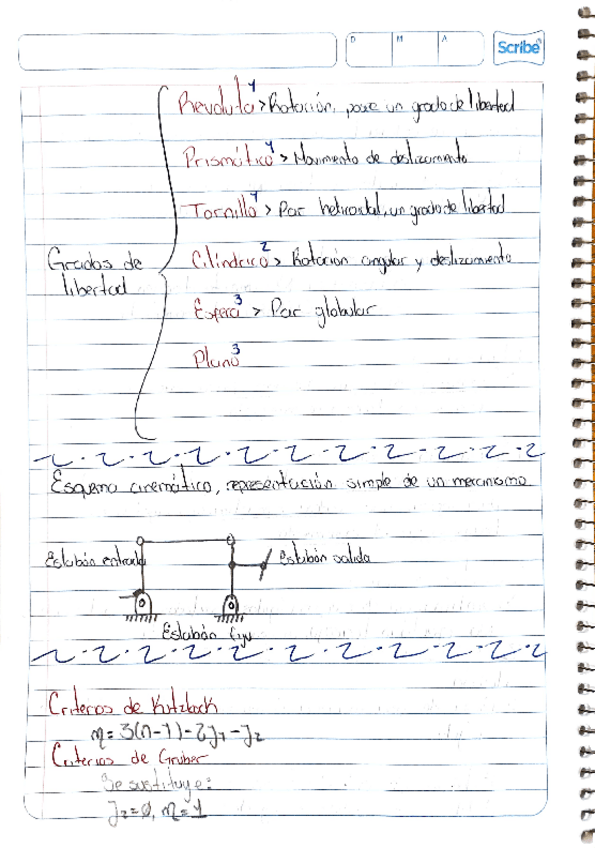 D M A
Scribe
Revoluta¹ > Rotación, posee un grado de libertad
Prismático¹ > Movimento de deslizamento
Tornillo¹ > Par helicoidal, un grado de libertad
Grados de libertad
Cilíndrico² > Rotación angular y deslizamiento
Esfera³ > Par globular
Plano³
Esquema cinemático, representación simple de un mecanismo
Eslabón entrada
Eslabón salida
Eslabón fijo
Criterios de Kutzback
m = 3(n-1) - 2J₁ - J₂
Criterios de Gruber
Se sustituye:
J₂ = 0, m = 1